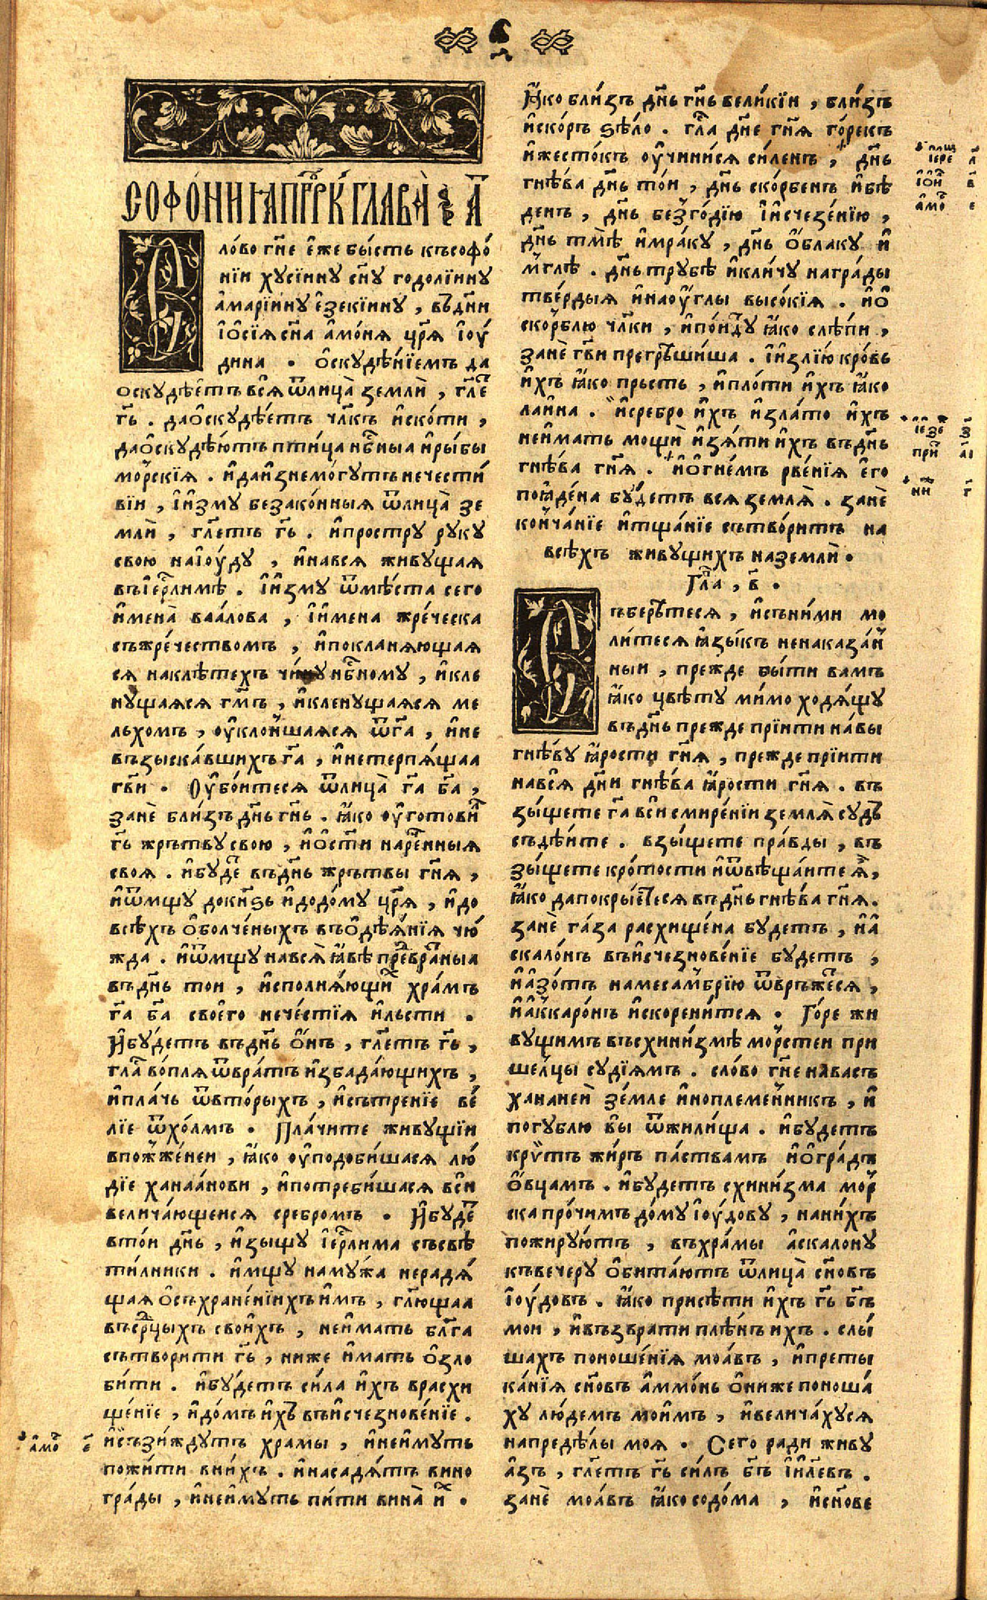 СОФО́НИИ ПР҃РКА ГЛАВА̀ А҃
Сло́во гн҃е є҆́же бы́сть къ софо́
нїи хꙋсі́инꙋ сн҃ꙋ годолі́инꙋ
а҆марі́инꙋ є҆зекі́инꙋ , въ дн҃и
і҆ѡ҆сі́ѧ сн҃а а҆мо́нѧ цр҃ѧ і҆ꙋ́
дина . ѡ҆скꙋдѣ́нїемъ да
оскꙋдѣ́етъ всѧ ѿ лица̀ землѝ , гл҃е
гь҃ . да ѡ҆скꙋдѣ́етъ чл҃къ и҆ ско́ти ,
да ѡ҆скꙋдѣ́ютъ пти́ца нб҃ныа и҆ ры́бы
мо́рскїѧ . и҆ да и҆знемо́гꙋтъ нечести́
вїи , і҆ и҆змꙋ̀ безако́нныѧ ѿ лица̀ зе
млѝ , гл҃етъ гь҃ . и҆ простр꙽ꙋ рꙋкꙋ
свою на і҆ꙋ́дꙋ , и҆ на всѧ живꙋщаѧ
въ і҆ер҃лимѣ . і҆ и҆змꙋ ѿ мѣ́ста сего
и҆мена̀ ваа́лова , і҆ и҆мена жре́ческа
съ жре́чествомъ , и҆ покланѧ́ющаѧ
сѧ на клѣ́техъ чи́нꙋ нб҃номꙋ , и҆ кле
нꙋщаѧсѧ гм҃ъ , и҆ кленꙋщаѧсѧ ме
льхомъ , оу҆клоньшаѧсѧ ѿ г҃а , и҆ не
възыска́вшихъ г҃а , и҆ не терпѧ́щаа
гв҃и . Оу҆бо́итесѧ ѿ лица̀ г҃а б҃а ,
занѐ бли́зъ дн҃ь гн҃ь . ꙗ҆́ко оу҆гото́ви
гь҃ жръ́твꙋ свою , и҆ ѡ҆ст҃и наре́нныѧ
своѧ . и҆ бꙋ́де въ дн҃ь жръ́твы гн҃ѧ ,
и҆ ѿмщꙋ до кн҃ѕь и҆ до до́мꙋ цр҃ѧ , и҆ до
всѣ́хъ ѡ҆болче́ныхъ въ ѡ҆дѣѧ́нїѧ чю́
жда . и҆ ѿмщꙋ на всѧ ꙗ҆́вѣ превра́ныа
въ дн҃ь то́и , и҆сполнѧ́ющи хра́мъ
г҃а б҃а своего̀ нече́стїѧ и҆ льсти .
И҆ бꙋ́детъ въ дн҃ь ѡ҆́нъ , гл҃етъ гь҃ ,
гл҃а во́плѧ ѿ вра́тъ и҆збада́ющихъ ,
и҆ пла́чь ѿ вто́рыхъ , и҆ сътре́нїе ве́
лїе ѿ хо́лмъ . Пла́чите живꙋ́щїи
в пожже́неи , ꙗ҆́ко оу҆подо́бишасѧ лю́
дїе ханаа́нови , и҆ потреби́шасѧ вси
велича́ющеисѧ сребро́мъ . И҆ бꙋ́де
в то́и дн҃ь , и҆зыщꙋ і҆ер҃лима съ свѣ
ти́лники . и҆ мщꙋ на мꙋ́жа нерадѧ́
щаѧ ѡ҆ съхране́нїихъ и҆мъ , гл҃ющаа
въ ср҃цыхъ свои́хъ , не и҆́мать бл҃га
сътвори́ти гь҃ , ниже и҆́мать ѡ҆зло́
бити . и҆ бꙋ́детъ си́ла и҆́хъ в расхи
ще́нїе , и҆ до́мъ и҆́хъ въ и҆счезнове́нїе .
и҆ съзи́ждꙋтъ храмы , и҆ не и҆́мꙋть
пожи́ти в ни́хъ . и҆ насадѧ́тъ вино
гра́ды , и҆ не и҆́мꙋть пи́ти вина̀ и҆́х .
а҆мо҃ є҃
Ꙗ҆́ко бли́зъ дн҃ь гн҃ь вели́кїи , бли́зъ
и҆ ско́ръ ѕѣ́ло . гл҃а дн҃е гн҃ѧ го́рекъ
и҆ жесто́къ оу҆чини́сѧ си́ленъ , дн҃ь
гнѣ́ва дн҃ь то́и , дн҃ь ско́рбенъ и҆ бѣ́
денъ , дн҃ь безго́дїю і҆ и҆счезе́нїю ,
дн҃ь тмѣ̀ и҆ мра́кꙋ , дн҃ь ѡ҆́блакꙋ и҆
мглѣ . дн҃ь трꙋбѣ̀ и҆ кли́чꙋ на гра́ды
тве́рдыѧ и҆ на оу҆́глы высо́кїѧ . и҆ ѡ҆
ско́рблю чл҃ки , и҆ по́идꙋ ꙗ҆́ко слѣ́пи ,
занѐ гв҃и прегрѣши́ша . і҆ и҆злїю̀ кро́вь
и҆́хъ ꙗ҆́ко пръсть , и҆ пло́ти и҆́хъ ꙗ҆́ко
ла́ина . и҆ сребро и҆́хъ и҆ зла́то и҆́хъ
не и҆́мать мощѝ и҆зѧ́ти и҆́хъ въ дн҃ь
гнѣ́ва гн҃ѧ . и҆ ѡ҆гне́мъ рве́нїѧ є҆го̀
поꙗде́на бꙋ́детъ всѧ землѧ̀ . занѐ
конча́нїе и҆ тща́нїе сътвори́тъ на
всѣ́хъ живꙋщихъ на землѝ .
Гл҃а , в҃ .
Съберѣ́тесѧ , и҆ съ ни́ми мо
ли́тесѧ ꙗ҆зы́къ ненаказа́н
ныи , прежде бы́ти вамъ
ꙗ҆́ко цвѣ́тꙋ мимо ходѧ́щꙋ
въ дн҃ь прежде прїи́ти на вы́
гнѣ́вꙋ ꙗ҆́рости гн҃ѧ , прежде прїи́ти
на всѧ́ дн҃и гнѣ́ва ꙗ҆́рости гн҃ѧ . въ
зы́щете г҃а вси смире́нїи землѧ̀ сꙋдъ
съдѣ́ите . взы́щете пра́вды , въ
зы́щете кро́тости и҆ ѿвѣща́ите ѧ҆̀ ,
ꙗ҆́ко да покры́етесѧ въ дн҃ь гнѣ́ва гн҃ѧ .
занѐ га́за расхи́щена бꙋ́детъ , и҆ а҆
скало́нъ въ и҆счезнове́нїе бꙋ́детъ ,
и҆ а҆зо́тъ на месамбрі́ю ѿвръ́жесѧ ,
и҆ а҆ккаро́нъ и҆скорени́тсѧ . Го́ре жи
вꙋщимъ въ схини́змѣ мо́рстеи при
ше́лцы сꙋдїѧ́мъ . сло́во гн҃е на васъ
ханане́й зе́мле и҆ноплеме́нникъ , и҆
погꙋблю̀ вы ѿ жили́ща . и҆ бꙋ́детъ
кри́тъ жи́ръ па́ствамъ и҆ ѡ҆гра́да
ѡ҆́вцамъ . и҆ бꙋ́детъ схини́зма мор
ска про́чимъ до́мꙋ і҆ꙋ́довꙋ , на ни́хъ
пожирꙋ́ютъ , въ хра́мы а҆скало́нꙋ
къ ве́черꙋ ѡ҆бита́ютъ ѿ лица̀ сн҃овъ
і҆ꙋ́довъ . ꙗ҆́ко присѣти́ и҆́хъ гь҃ бг҃ъ
мои , и҆ възврати плѣ́нъ и҆хъ . слы́
шахъ поноше́нїѧ моа́въ , и҆ преты
ка́нїѧ сн҃овъ а҆ммо́нь ѡ҆ ни́же поноша́
хꙋ лю́демъ мои́мъ , и҆ велича́хꙋсѧ
на предѣ́лы моѧ . Сего ради живꙋ
а҆́зъ , гл҃етъ гь҃ си́лъ бг҃ъ і҆и҃левъ .
занѐ моа́въ ꙗ҆́ко содо́ма , и҆ сн҃ове
плащ
іере л҃
і҆о҆и в҃
а҆мо҃ е
і҆езе з҃
при а҃і
ни г҃